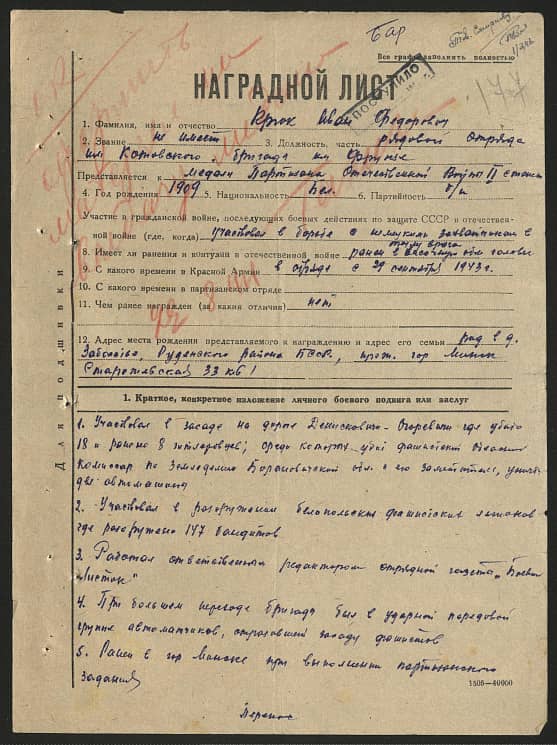 Бар
Все графы заполнить полностью
НАГРАДНОЙ ЛИСТ
ПОСТУПИЛО
177
1. Фамилия, имя и отчество Крюк Иван Федорович
2. Звание не имеет 3. Должность, часть рядовой отряда
им Котовского бригада им Фрунзе
Представляется к медали Партизана Отечественной Войны II степени
4. Год рождения 1909 5. Национальность бел. 6. Партийность б/п
Участие в гражданской войне, последующих боевых действиях по защите СССР и отечествен-
ной войне (где, когда) участвовал в борьбе с немецкими захватчиками в
тылу врага
8. Имеет ли ранения и контузии в отечественной войне ранен в височную обл головы
9. С какого времени в Красной Армии в отряде с 29 сентября 1943 г.
10. С какого времени в партизанском отряде
11. Чем ранее награжден (за какия отличия) нет
12. Адрес места рождения представляемого к награждению и адрес его семьи род в д.
Руденского района БССР, прож. гор Минск
33 кв 1
Для подшивки
1. Краткое, конкретное изложение личного боевого подвига или заслуг
1. Участвовал в засаде на дороге Денисковичи - где убито
18 и ранено 8 гитлеровцев; среди которых убит фашистский областной
комиссар по земледелию Барановичской обл. и его заместитель,
две автомашины
2. Участвовал в разоружении белопольских фашистских легионов
где разоружено 147 бандитов
3. Работал ответственным редактором отрядной газеты „Боевой
Листок"
4. При большом переходе бригады был в ударной передовой
группе автоматчиков, засаду фашистов
5. Ранен в гор Минске при выполнении партизанского
задания
1505—40000